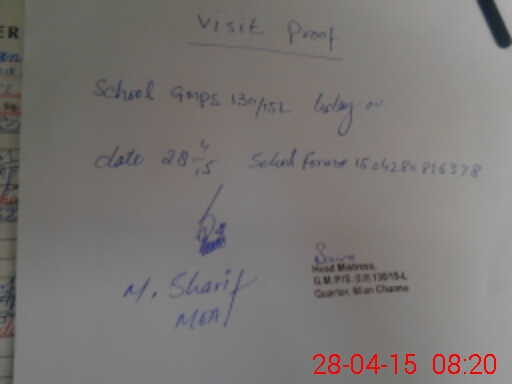 Visit Proof
School GMPS 130/15L today on
date 28 4/15 School Form# 1504280816378
M. Sharif
MEA
Head Mistress,
G.M.P/S 130/15-L
Quarter, Mian Channu
28-04-15 08:20